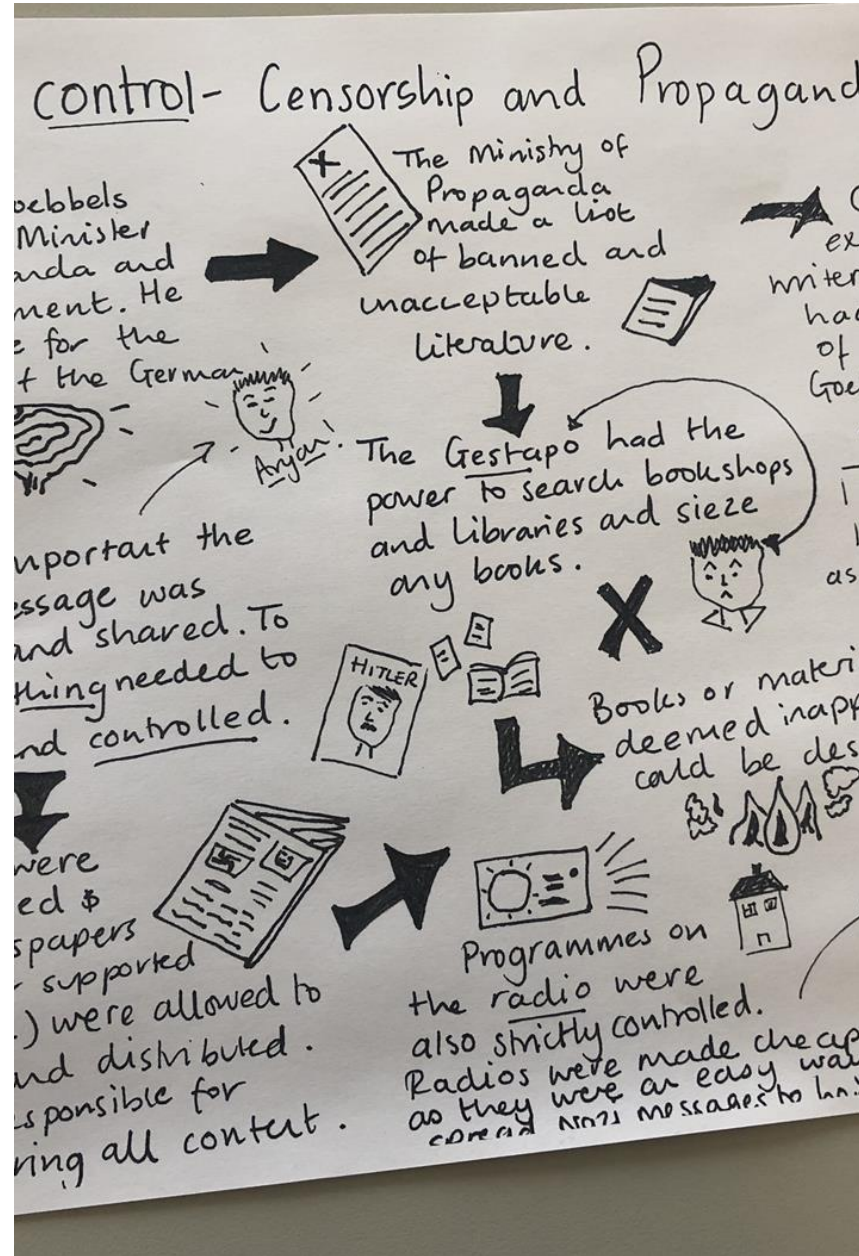 control - Censorship and Propagand
oebbels
Minister
anda and
ment. He
e for the
f the German
Aryan!
mportant the
essage was
and shared. To
thing needed to
nd controlled.
were
ed &
spapers
supported
.) were allowed to
and distributed.
esponsible for
ring all content.
The Ministry of
Propaganda
made a list
of banned and
unacceptable
literature.
The Gestapo had the
power to search bookshops
and libraries and sieze
any books.
HITLER
Programmes on
the radio were
also strictly controlled.
Radios were made cheap
as they were an easy way
spread nazi messages to
ex
writer
had
of
Goe
as
Books or materi
deemed inapp
could be des